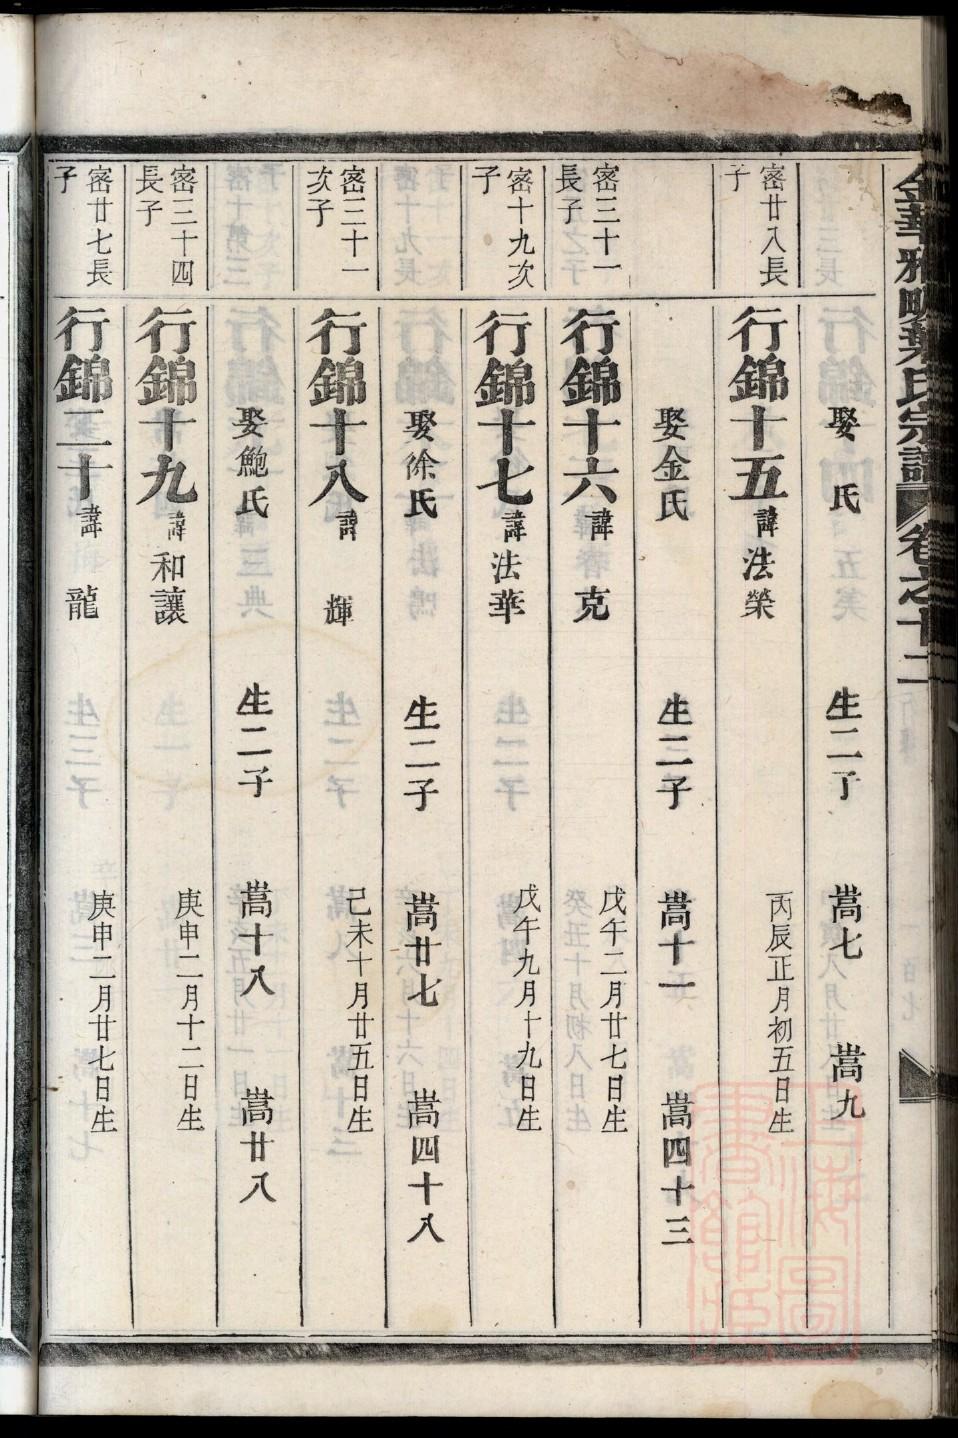 金華雅畈葉氏宗譜 卷之十二
娶 氏 生二子 嵩七 嵩九
密廿八長子
行錦十五 諱法榮 丙辰正月初五日生
娶金氏 生三子 嵩十一 嵩四十三
密三十一長子
行錦十六 諱 克 戊午二月廿七日生
密十九次子
行錦十七 諱法華 戊午九月十九日生
娶徐氏 生二子 嵩廿七 嵩四十八
密三十一次子
行錦十八 諱 輝 己未十月廿五日生
娶鮑氏 生二子 嵩十八 嵩廿八
密三十四長子
行錦十九 諱和讓 庚申二月十二日生
密廿七長子
行錦二十 諱 龍 庚申二月廿七日生
上海圖書館藏